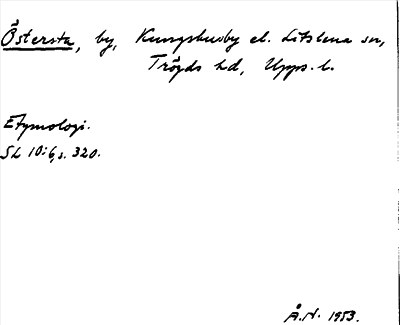 Östersta, by, Kungshusby el. Litslena sn,
Trögds hd, Upps. l.
Etymologi.
SL 10:6, s. 320.
Å.N. 1953.